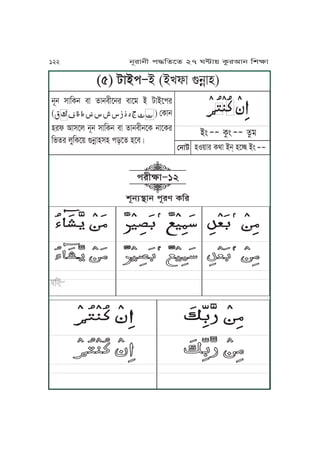 ১২২ নূরানী পদ্ধতিতে ২৭ ঘন্টায় কুরআন শিক্ষা
(৫) টাইপ-ই (ইখফা গুন্নাহ)
নূন সাকিন বা তানবীনের বামে ই টাইপের
(ت ث ج د ذ ز س ش ص ض ط ظ ف ق ك) কোন
হরফ আসলে নূন সাকিন বা তানবীনকে নাকের
ভিতর লুকিয়ে গুন্নাহসহ পড়তে হবে।
اِنْ كُنْتُمْ
ইং-- কুং-- তুম
নোট হওয়ার কথা ইন্ হচ্ছে ইং --
পরীক্ষা-১২
শূন্যস্থান পূরণ করি
مِنْۢ بَعْدِ سَمِيْعًۢا بَصِيْرًا مَنْ يَّشَآءُ
مِنْۢ بَعْدِ سَمِيْعًۢا بَصِيْرًا مَنْ يَّشَآءُ
مِنْ رَّبِّكَ اِنْ كُنْتُمْ
مِنْ رَّبِّكَ اِنْ كُنْتُمْ